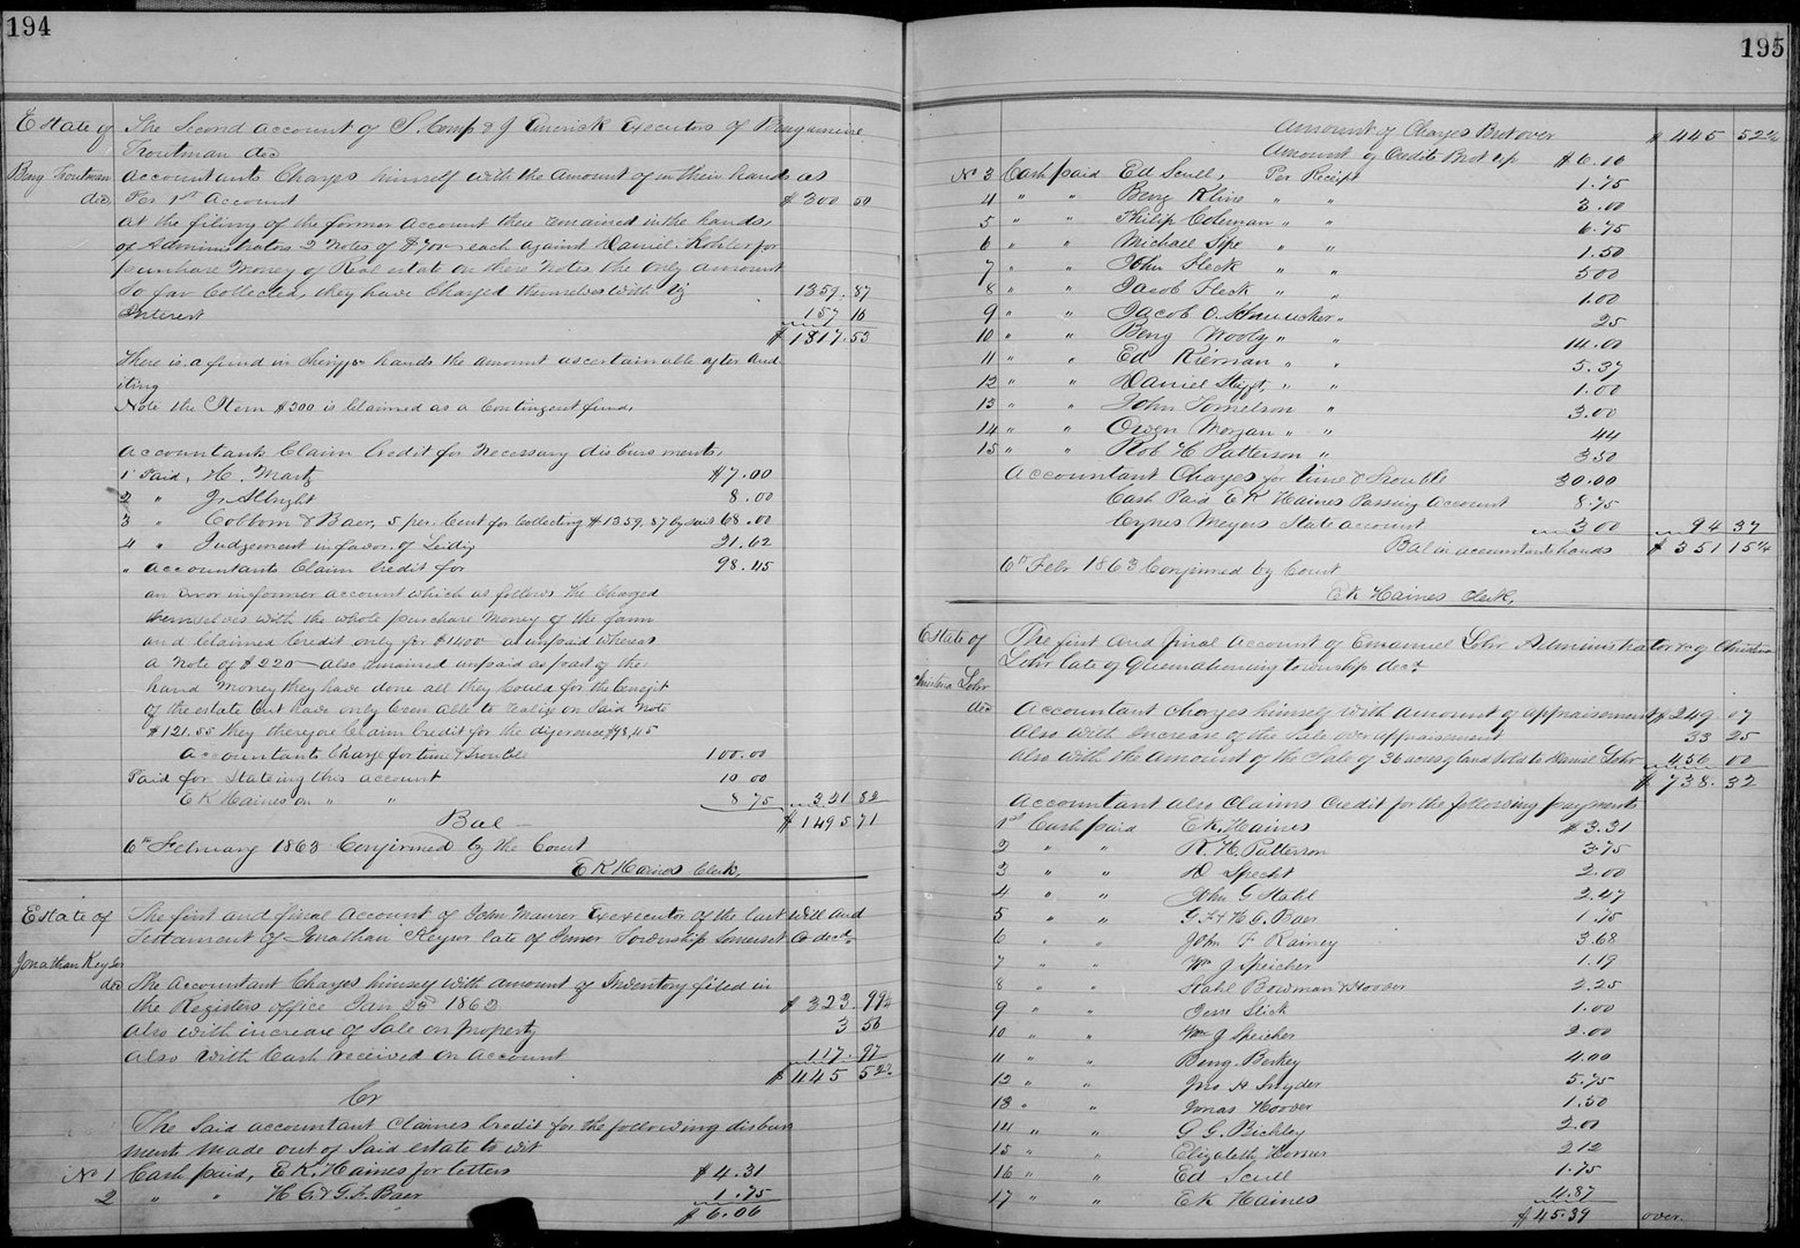 194
Estate of
Benj Troutman
decd
The Second account of S. Comp & J Emerick Executors of Bengamine
Troutman decd
Accountants Charges himself with the amount of in their hands as
Per 1st Account $300 50
At the filing of the former account there remained in the hands,
of Administrators 2 notes of $700 each against Daniel Kohler for
purchase Money of Real estate on these notes the only amount
So far Collected, they have Charged themselves with Viz 1359.87
Interest 157 16
$1817.53
There is a fund in hands the amount ascertainable after Aud
iting
Note the Item $300 is Claimed as a Contingent fund,
Accountants Claim Credit for Necessary disbursements,
1 Paid, H. Martz $7.00
2 " J. Albright 8.00
3 " Cobborn & Baer, 5 per. Cent for Collecting $1359.87 by suit 68.00
4 " Judgement in favor of Leidig 21.62
" Accountants Claim Credit for 98.45
an Error in former account which as follows the Charged
themselves with the whole purchase Money of the farm
and Claimed Credit only for $1400 at unpaid whereas
a Note of $220 also remained unpaid as part of the
hand Money they have done all they Could for the benefit
of the estate but have only been able to realize on Said Note
$121.55 they therefore Claim Credit for the diference $98,45
Accountants Charge for time & trouble 100.00
Paid for Stateing this account 10 00
E K Haines on " " 8 75 331 82
Bal $1495 71
6th February 1863 Confirmed by the Court
E K Haines Clerk,
Estate of
Jonathan Keyser
decd
The first and final account of John Maurer Exexecutor of the last Will and
Testament of Jonathan Keyser late of Jenner Township Somerset Co decd
The Accountant Charges himself with amount of Inventory filed in
the Registers office Jan 22d 1862 $323.99½
Also with increase of Sale on property 3 56
Also With Cash received on account 117.97
$445 52½
Cr
The Said accountant Claimes Credit for the following disburs
ments made out of Said estate to wit
No 1 Cash paid, E K. Haines for letters $4.31
2 " " H G. & G. F. Baer 1.75
$6.06
195
Amount of Charges Brot over $445 52½
Amount of Credits Brot up $6.16
No 3 Cash paid Ed Scull, Per Receipt 1.75
4 " " Benj Kline " " 3.00
5 " " Philip Coleman " " 6.75
6 " " Michael Sipe " " 1.50
7 " " John Fleck " " 5 00
8 " " Jacob Fleck " " 1.00
9 " " Jacob O. Schmucker " 25
10 " " Benj Wooly " " 14.00
11 " " Ed Kiernan " " 5.37
12 " " Daniel Stifft, " " 1.00
13 " " John Tomelson " 3.00
14 " " Owen Morgan " " 44
15 " " Rob H Patterson " 3 50
Accountant Charges for time & Trouble 30.00
Cash Paid E K Haines Passing Account 8.75
Cyrus Meyers State account 3 00 94 37
Bal in accountants hands $351 15¼
6th Febr 1863 Confirmed by Court
E K Haines Clerk,
Estate of
Christena Lohr
decd
The first and final account of Emanuel Lohr Administrator &c of Christina
Lohr late of Quemahoning township decd
Accountant Charges himself with amount of appraisement $249.07
Also With Increase of the Sale over appraisement 33 25
Also with the amount of the Sale of 36 acres of land Sold to Daniel Lohr 456 00
$738.32
Accountant also Claims Credit for the following payments
1st Cash paid E K. Haines $3.31
2 " " R. H. Patterson 3.75
3 " " D Specht 2.00
4 " " John G Stahl 2.47
5 " " G F & H G. Baer 1.75
6 " " John F Rainey 3.68
7 " " Wm J Speicher 1.19
8 " " Stahl Bowman & Hoover 2.25
9 " " Jesse Slick 1.00
10 " " Wm J Speicher 2.00
11 " " Benj. Berkey 4.00
12 " " Jno H Snyder 5.75
13 " " Jonas Hoover 1.50
14 " " G G. Bickley 2.00
15 " " Elizabeth Horner 2 12
16 " " Ed Scull 1.75
17 " " E K Haines 4.87
$45.39 over.